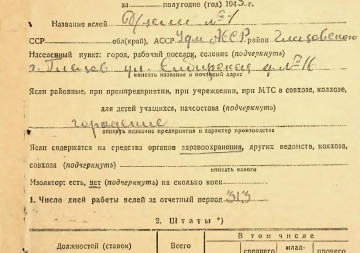 за полугодие (год) 1943 г.
Название яслей Ясли №1
ССР обл(край), АССР Удм АССР район Глазовского
Населенный пункт: город, рабочий поселок, селение (подчеркнуть)
г. Глазов ул. Сибирская д. №16
вписать название и почтовый адрес
Ясли районные, при промпредприятии, при учреждении, при МТС в совхозе, колхозе,
для детей учащихся, начсостава (подчеркнуть)
городские
вписать название предприятия и характер производства
Ясли содержатся на средства органов здравоохранения, других ведомств, колхоза,
совхоза (подчеркнуть)
вписать какого
Изолятор: есть, нет (подчеркнуть) на сколько коек
1. Число дней работы яслей за отчетный период 313
2. Штаты *)
Должностей (ставок)
Всего
В том числе
среднего
млад-
прочего